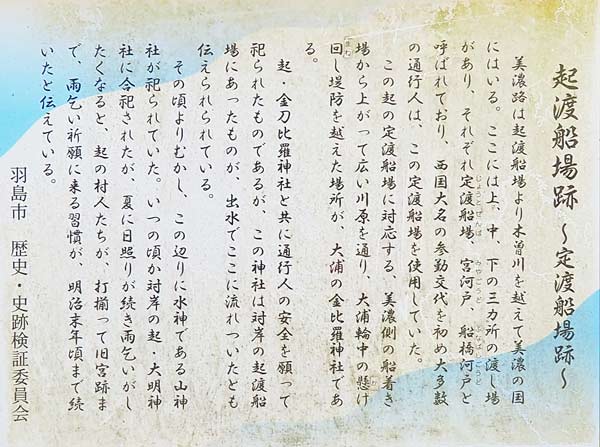 起渡船場跡 ～定渡船場跡～
美濃路は起渡船場より木曽川を越えて美濃の国
にはいる。ここには上、中、下の三カ所の渡し場
があり、それぞれ定渡船場、宮河戸、船橋河戸と
じょうとせんば みやごうど ふなばしごうど
呼ばれており、西国大名の参勤交代を初め大多数
の通行人は、この定渡船場を使用していた。
この起の定渡船場に対応する、美濃側の船着き
場から上がって広い川原を通り、大浦輪中の懸け
回し堤防を越えた場所が、大浦の金比羅神社であ
る。
起・金刀比羅神社と共に通行人の安全を願って
祀られたものであるが、この神社は対岸の起渡船
場にあったものが、出水でここに流れついたとも
伝えられている。
その頃よりむかし、この辺りに水神である山神
社が祀られていた。いつの頃か対岸の起・大明神
社に合祀されたが、夏に日照りが続き雨乞いがし
たくなると、起の村人たちが、打揃って旧宮跡ま
で、雨乞い祈願に来る習慣が、明治末年頃まで続
いたと伝えている。
羽島市 歴史・史跡検証委員会